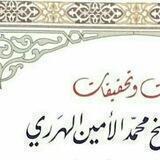 وتحقيقات
محمد الأمين الهرري